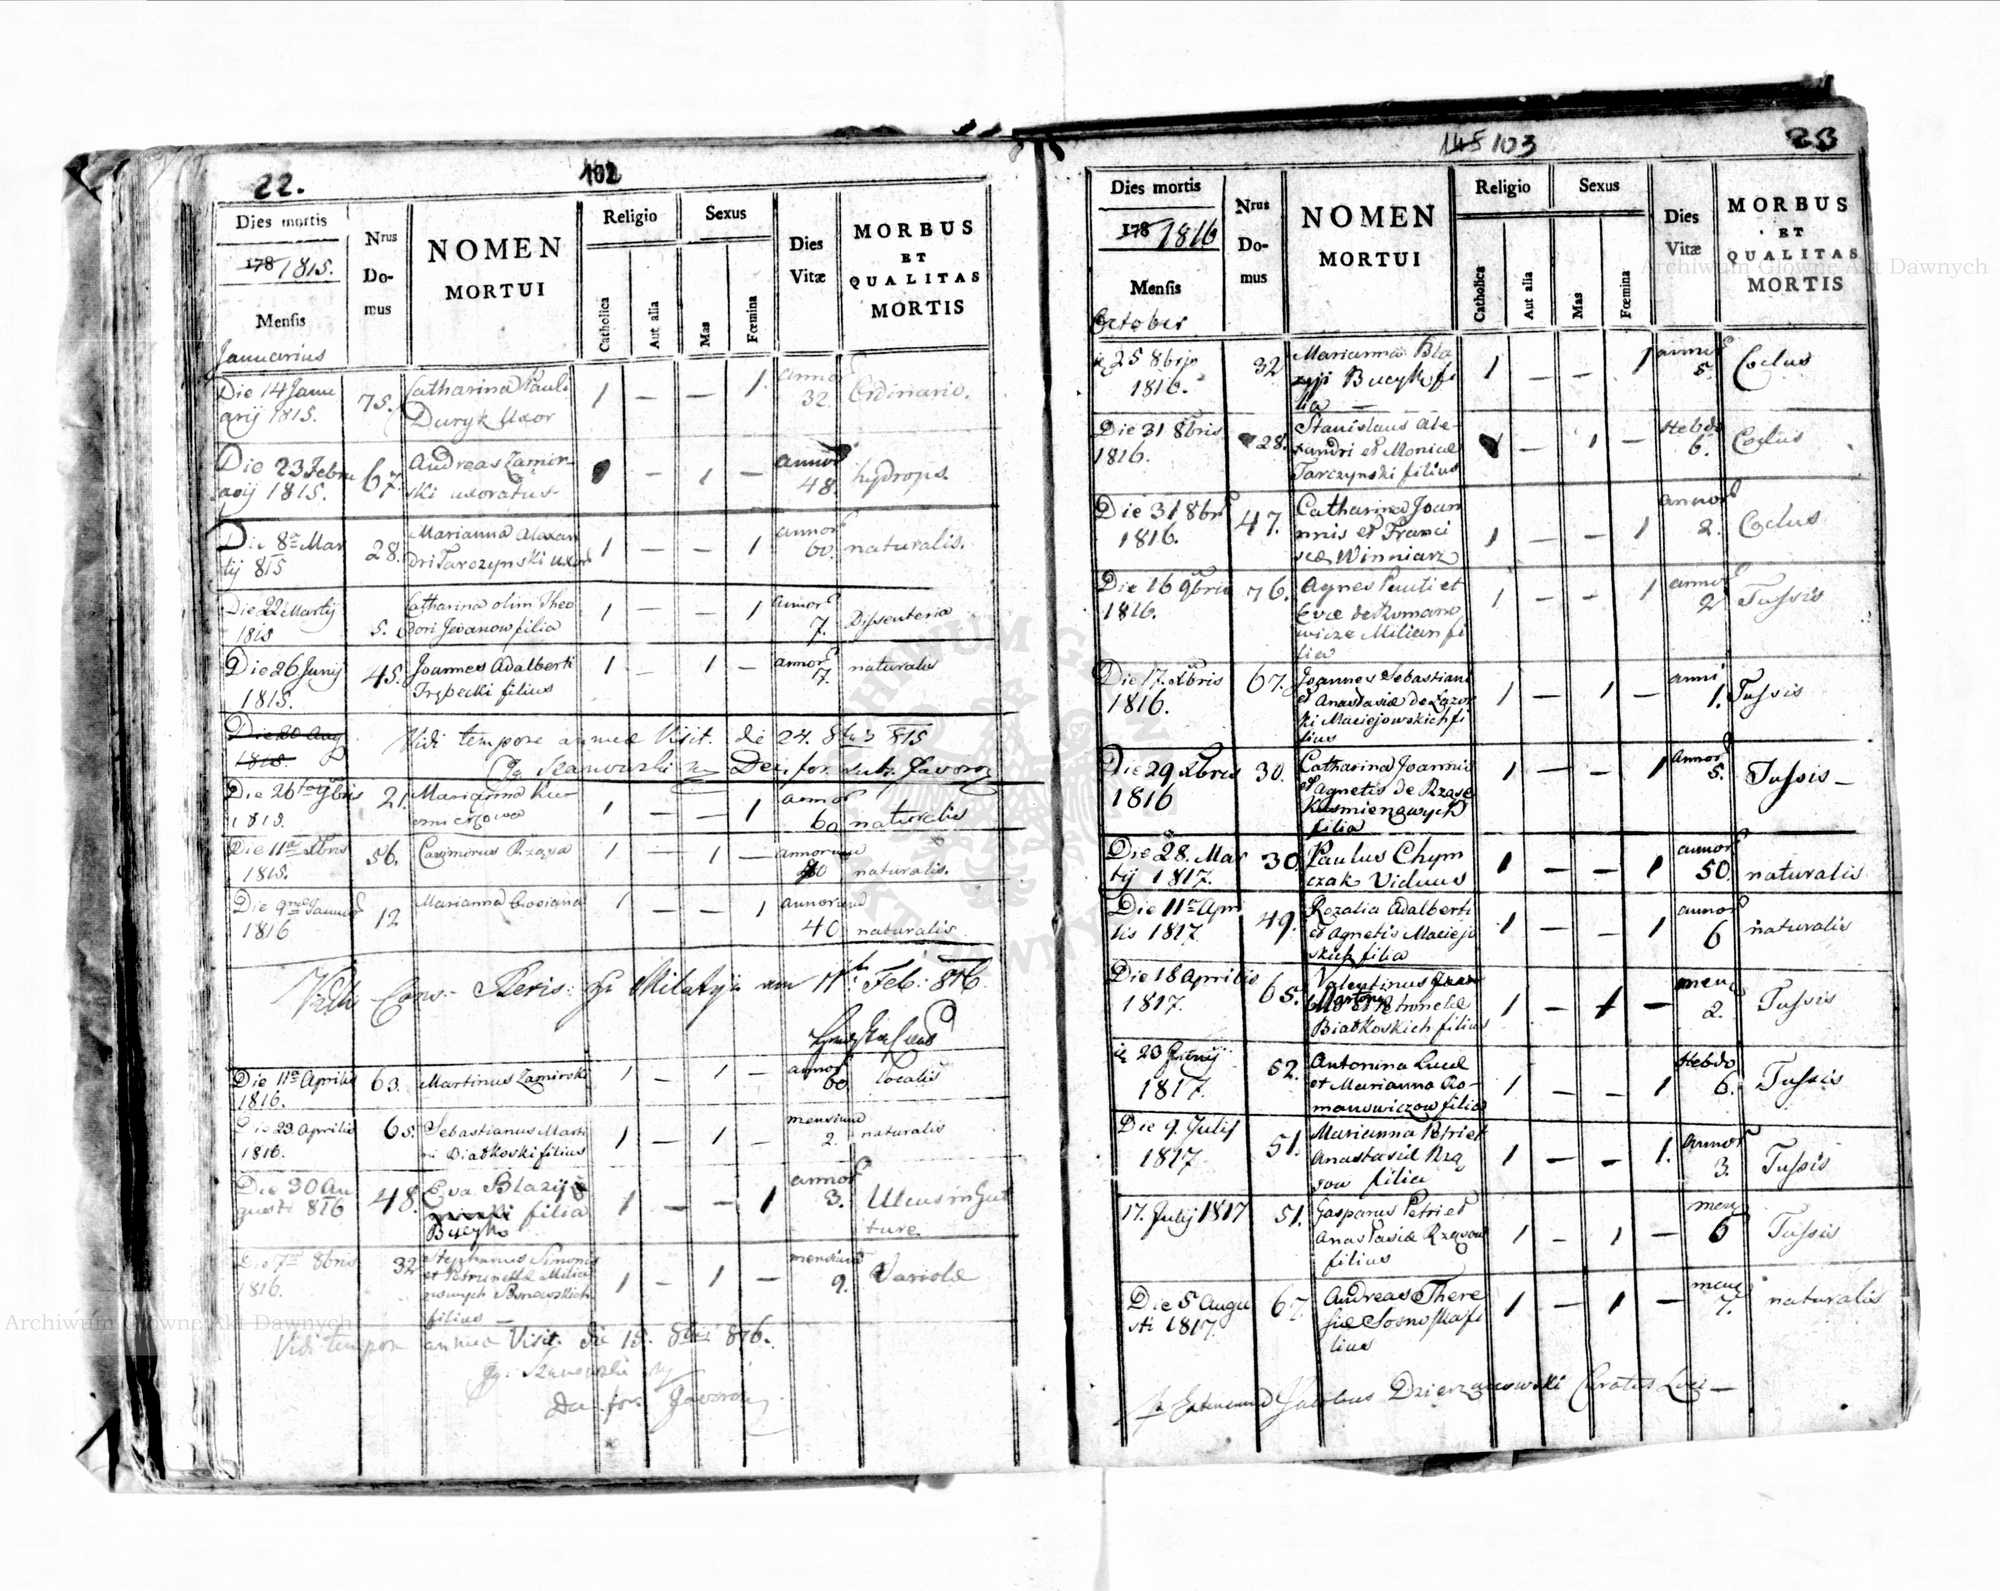 22.
102
Dies mortis
178 1815.
Mensis
Januarius
Nrus
Do-
mus
NOMEN
MORTUI
Religio
Catholica
Aut alia
Sexus
Mas
Fœmina
Dies
Vitæ
MORBUS
ET
QUALITAS
MORTIS
Die 14 Janu
arij 1815.
75.
Catharina Pauli
Duryk Uxor
1 — — 1.
annor
32.
Ordinario.
Die 23 Febru
arij 1815.
67.
Andreas Zamir-
ski uxoratus
— 1 —
annor
48.
hydrops.
Die 8va Mar
tij 815
28.
Marianna Alexan
dri Tarczynski uxor
1 — — 1
annor
60.
naturalis.
Die 22 Martij
1815
5.
Catharina olim Theo
dori Jwanow filia
1 — — 1
annor
7.
Dissenteria
Die 26 Junij
1815.
45.
Joannes Adalberti
Trębecki filius
1 — 1 —
annor
7.
naturalis
Die 20 Aug
1815.
Vidi tempore annuæ Visit. die 24. 8bris 815
Die 26 9bris
1815.
21.
Marianna
1 — — 1
annor
60
naturalis
Die 11a Xbris
1815.
56.
Casimirus Rząsa
1 — 1 —
annorum
naturalis.
Die 9na Januar
1816
12
Marianna
1 — — 1
annorum
40
naturalis.
11 Feb: 816.
Die 11a Aprilis
1816.
63.
Martinus Zamirski
1 — 1 —
annor
60
Localis
Die 29 Aprilis
1816.
65.
Sebastianus Marti
ni Białkoski filius
1 — 1 —
mensium
2.
naturalis
Die 30 Au
gusti 816
48.
Eva Blazij
filia
Bucyko
1 — — 1
annor
3.
Ulcus in Gut
ture
Die 7ma 8bris
1816.
32
Stephanus Simonis
et Petronellæ
filius
1 — 1 —
mensium
9.
Variolæ
Vidi tempore annuæ Visit. die 15. 8bris 816.
145 103
23
Dies mortis
178 1816
Mensis
October
Nrus
Do-
mus
NOMEN
MORTUI
Religio
Catholica
Aut alia
Sexus
Mas
Fœmina
Dies
Vitæ
MORBUS
ET
QUALITAS
MORTIS
25 8bris
1816.
32
Marianna Bla
zyji Bucyko fi
lia —
1 — — 1
annor
5.
Coclus
Die 31 8bris
1816.
28.
Stanislaus Ale-
xandri et Monicæ
Tarczynski filius
— 1 —
Hebdo
6.
Coclus
Die 31 8bri
1816.
47.
Catharina Joan
nnis et Franci
scæ Winniarz
1 — — 1
annor
2.
Coclus
Die 16 9bris
1816.
76.
Agnes Pauli et
Evæ de Romano
wicze Milian fi
lia
1 — — 1
annor
2
Tussis
Die 17. Xbris
1816.
67.
Joannes Sebastiani
et Anastasiæ de Zazor
ki Maciejowskich fi
lius
1 — 1 —
anni
1.
Tussis
Die 29 Xbris
1816
30.
Catharina Joannis
et Agnetis de Rząsa
filia
1 — — 1
annor
5.
Tussis —
Die 28. Mar
tij 1817.
30
Paulus Chym
czak Viduus
1 — — 1
annor
50.
naturalis
Die 11a Apri
lis 1817.
49.
Rozalia Adalberti
et Agnetis Maciejo
skich filia
1 — — 1
annor
6
naturalis
Die 18 Aprilis
1817.
65.
Valentinus
Martini et Petronelæ
Białkoskich filius
1 — 1 —
mens
2.
Tussis
23 Junij
1817.
52.
Antonina Lucæ
et Marianna Ro-
manowiczow filia
1 — — 1
Hebdo
6.
Tussis
Die 9. Julij
1817
51.
Marianna Petri et
Anastasiæ Rzą
sow filia
1 — — 1.
Annor
3.
Tussis
17. Julij 1817
51.
Gasparus Petri et
Anastasiæ Rząsow
filius
1 - 1 —
mens
6
Tussis
Die 5 Augu
sti 1817.
67.
Andreas There
siæ Sosnoskia fi
lius
1 — 1 —
mens
7.
naturalis
Jacobus Dzierzanowski Curatus Loci —
Archiwum Główne Akt Dawnych
Archiwum Główne Akt Dawnych